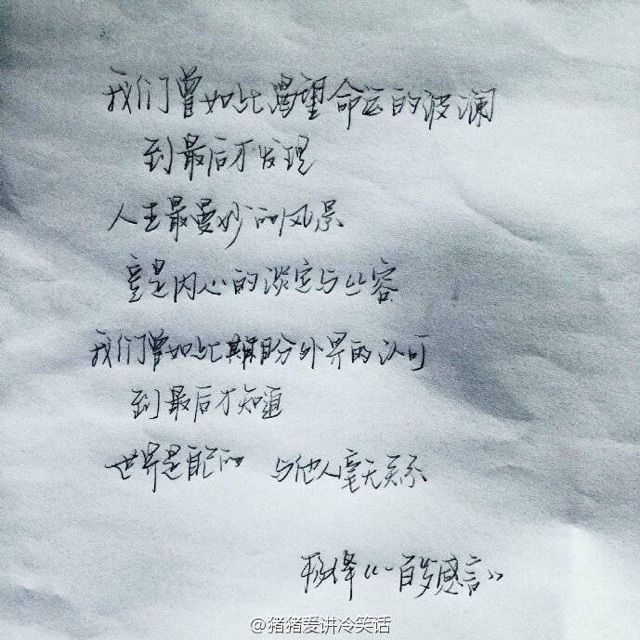 我们曾如此渴望命运的波澜
到最后才发现
人生最曼妙的风景
竟是内心的淡定与从容
我们曾如此期盼外界的认可
到最后才知道
世界是自己的 与他人毫无关系
杨绛《一百岁感言》
@猪猪爱讲冷笑话